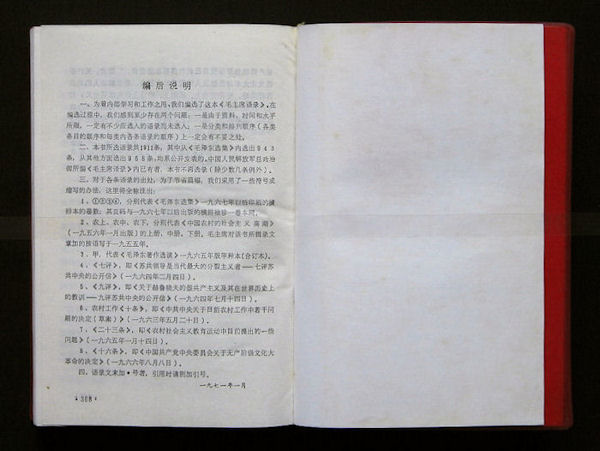 编后说明
一、为着内部学习和工作之用，我们编选了这本《毛主席语录》。在
编选过程中，我们感到至少存在两个问题：一是由于资料、时间和水平
所限，一定有不少应选入的语录而未选入；一是分类和排列顺序（各类
各目的顺序和每类内各条语录的顺序）上一定会有不妥之处。
二、本书所选语录共1911条，其中从《毛泽东选集》内选出943
条，从其他方面选出968条，均系公开发表的。中国人民解放军总政治
部所编《毛主席语录》内已有者，本书不再选录（除少数几条例外）。
三、对于各条语录的出处，为了节省篇幅，我们采用了一些符号或
缩写的办法，这里将全称注出：
1、①②③④，分别代表《毛泽东选集》一九六七年以后印刷的横
排本的卷数；其页码与一九六七年以后出版的横排袖珍一卷本同。
2、农上、农中、农下，分别代表《中国农村的社会主义高潮》
（一九五六年一月出版）的上册，中册，下册。毛主席对该书所辑录文
章加的按语写于一九五五年。
3、甲，代表《毛泽东著作选读》一九六五年版甲种本（合订本）。
4、《七评》，即《苏共领导是当代最大的分裂主义者——七评苏
共中央的公开信》（一九六四年二月四日）。
5、《九评》，即《关于赫鲁晓夫的假共产主义及其在世界历史上
的教训——九评苏共中央的公开信》（一九六四年七月十四日）。
6、农村工作《十条》，即《中共中央关于目前农村工作中若干问
题的决定（草案）》（一九六三年五月二十日）。
7、《二十三条》，即《农村社会主义教育运动中目前提出的一些
问题》（一九六五年一月十四日）。
8、《十六条》，即《中国共产党中央委员会关于无产阶级文化大
革命的决定》（一九六六年八月八日）。
四、语录文末加·号者，引用时请别加引号。
一九七一年一月
·308·